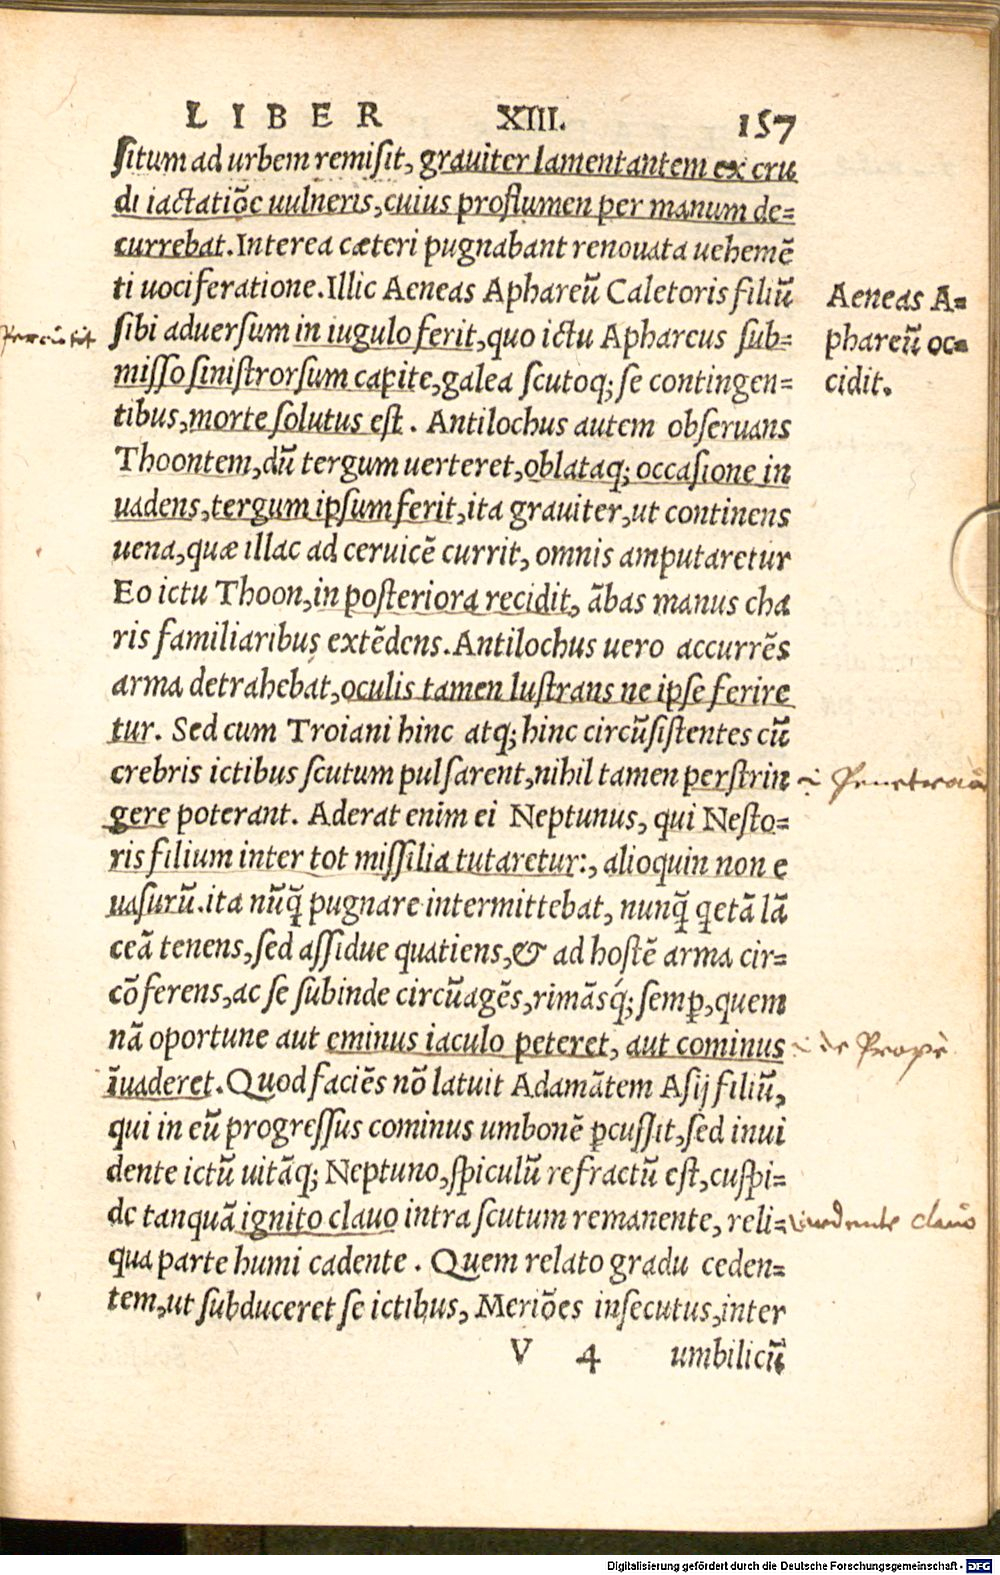 LIBER XIII. 157
ſitum ad urbem remiſit, grauiter lamentantem ex cru
di iactatiõe uulneris, cuius proflumen per manum de=
currebat. Interea cæteri pugnabant renouata uehemẽ
ti uociferatione. Illic Aeneas Aphareũ Caletoris filiũ
Aeneas A=
ſibi aduerſum in iugulo ferit, quo ictu Aphareus ſub=
phareũ oc=
miſſo ſiniſtrorſum capite, galea ſcutoq; ſe contingen=
cidit.
tibus, morte ſolutus eſt. Antilochus autem obſeruans
Thoontem, dũ tergum uerteret, oblataq; occaſione in
uadens, tergum ipſum ferit, ita grauiter, ut continens
uena, quæ illac ad ceruicẽ currit, omnis amputaretur
Eo ictu Thoon, in poſteriora recidit, ãbas manus cha
ris familiaribus extẽdens. Antilochus uero accurrẽs
arma detrahebat, oculis tamen luſtrans ne ipſe ferire
tur. Sed cum Troiani hinc atq; hinc circũſiſtentes cũ
crebris ictibus ſcutum pulſarent, nihil tamen perſtrin
gere poterant. Aderat enim ei Neptunus, qui Neſto=
ris filium inter tot miſſilia tutaretur:, alioquin non e
uaſurũ. ita nũq̃ pugnare intermittebat, nunq̃ q̃etã lã
ceã tenens, ſed aſſidue quatiens, & ad hoſtẽ arma cir=
cõferens, ac ſe ſubinde circũagẽs, rimãsq́; ſemꝑ, quem
nã oportune aut eminus iaculo peteret, aut cominus
ĩuaderet. Quod faciẽs nõ latuit Adamãtem Aſij filiũ,
qui in eũ progreſſus cominus umbonẽ ꝑcuſſit, ſed inui
dente ictũ uitãq; Neptuno, ſpiculũ refractũ eſt, cuſpi=
de tanquã ignito clauo intra ſcutum remanente, reli=
qua parte humi cadente. Quem relato gradu ceden=
tem, ut ſubduceret ſe ictibus, Meriões inſecutus, inter
V 4 umbilicũ
Digitalisierung gefördert durch die Deutsche Forschungsgemeinschaft - DFG